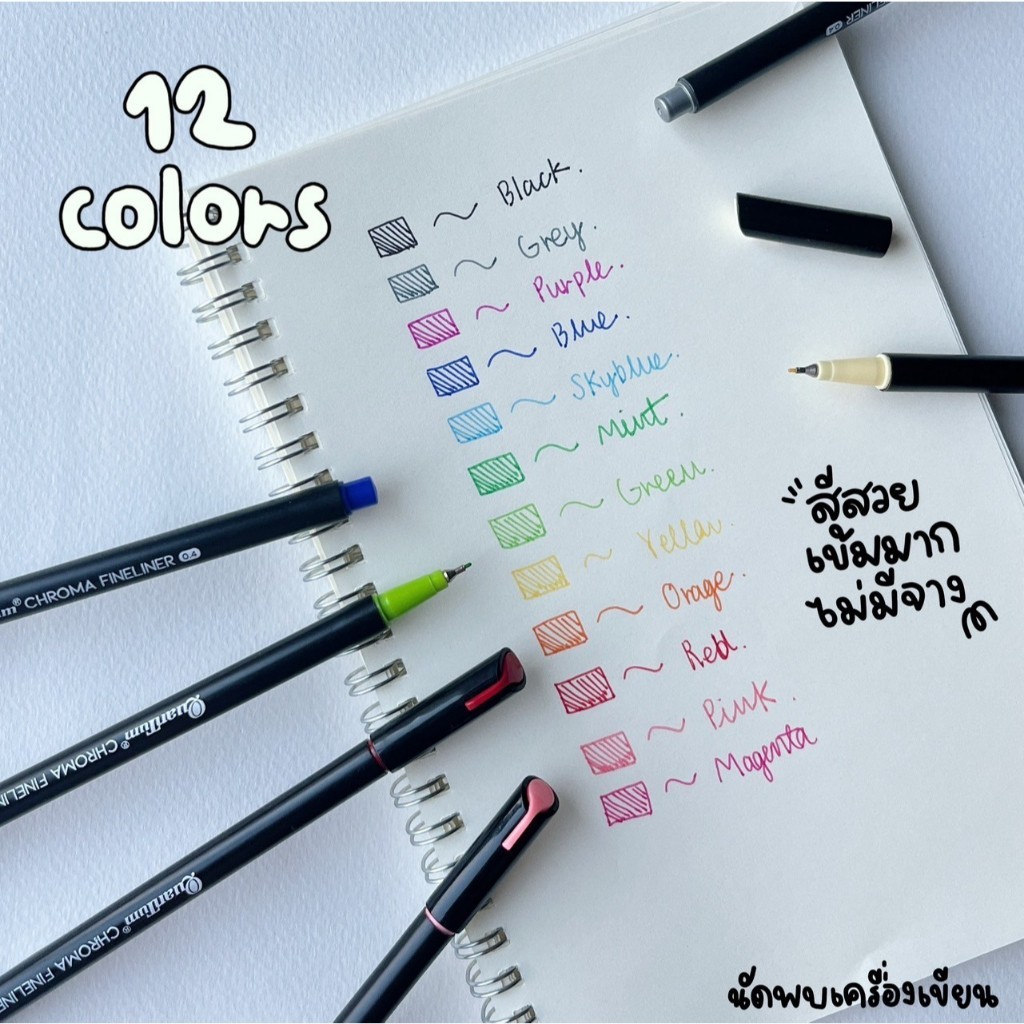 12
colors
ELINER 0.4
Black.
Grey.
Purple.
Blue.
Skyblue.
Mint.
Green.
Yellow.
Orage.
Red.
Pink.
Magenta
สีสวย
เข้มมาก
ไม่มีจาง
CHROMA FINELINER 0.4
QuanTum® CHROMA FINELI
QuanTum® CHROMA FINELI
นัดพบเครื่องเขียน